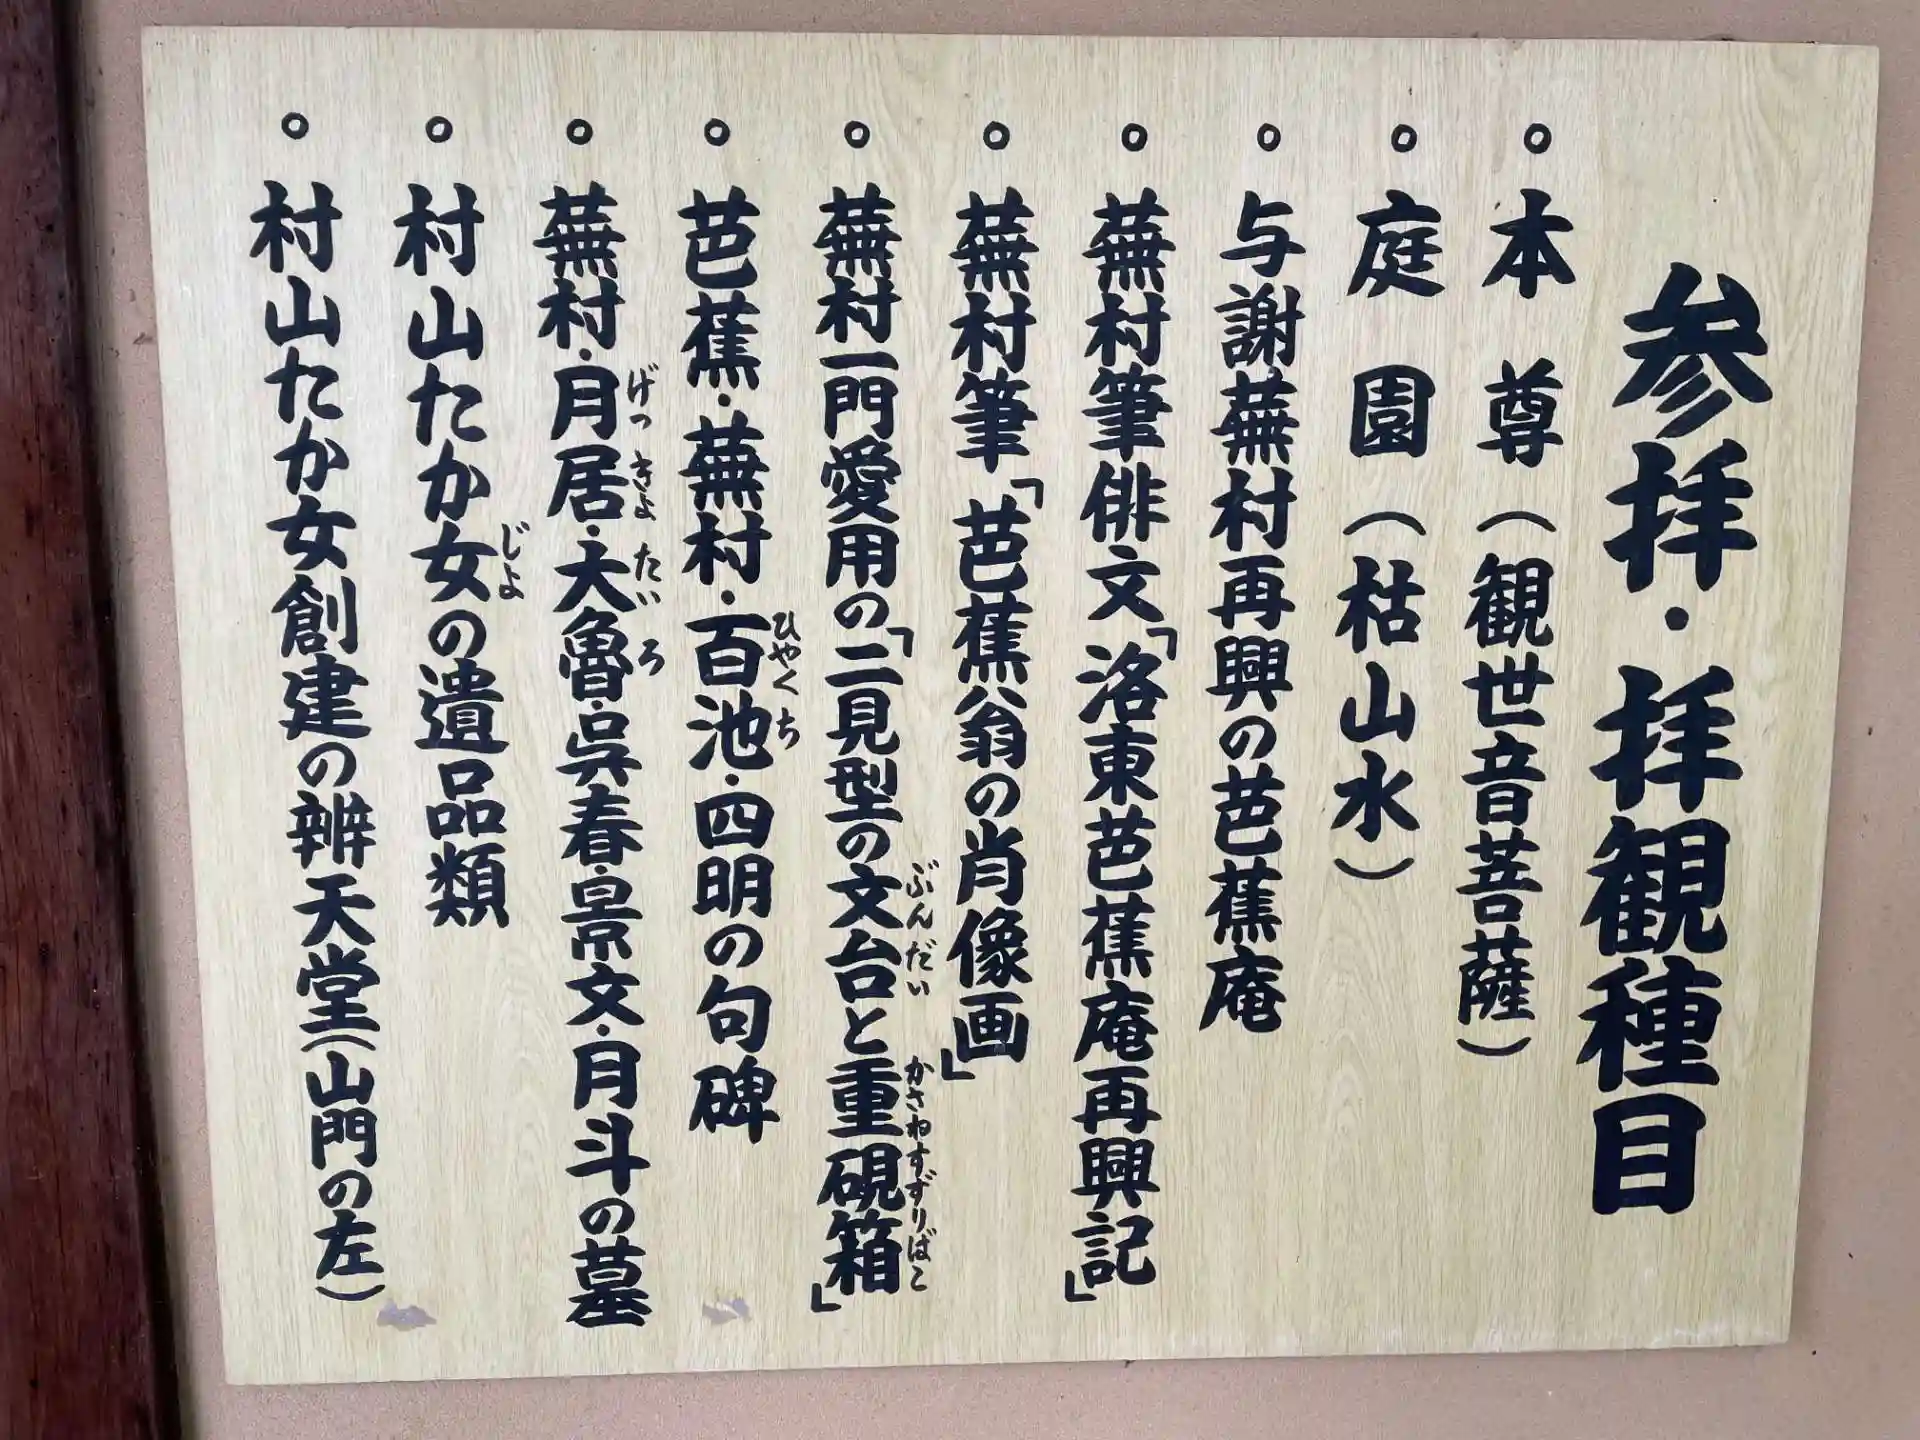 参拝・拝観種目
○ 本尊（観世音菩薩）
○ 庭園（枯山水）
○ 与謝蕪村再興の芭蕉庵
○ 蕪村筆俳文「洛東芭蕉庵再興記」
○ 蕪村筆「芭蕉翁の肖像画」
○ 蕪村一門愛用の「二見型の文台と重硯箱」
ぶんだい かさねすずりばこ
○ 芭蕉・蕪村・百池・四明の句碑
ひやくち
○ 蕪村・月居・大魯・呉春・景文・月斗の墓
げつきよ たいろ
○ 村山たか女の遺品類
じよ
○ 村山たか女創建の辨天堂（山門の左）